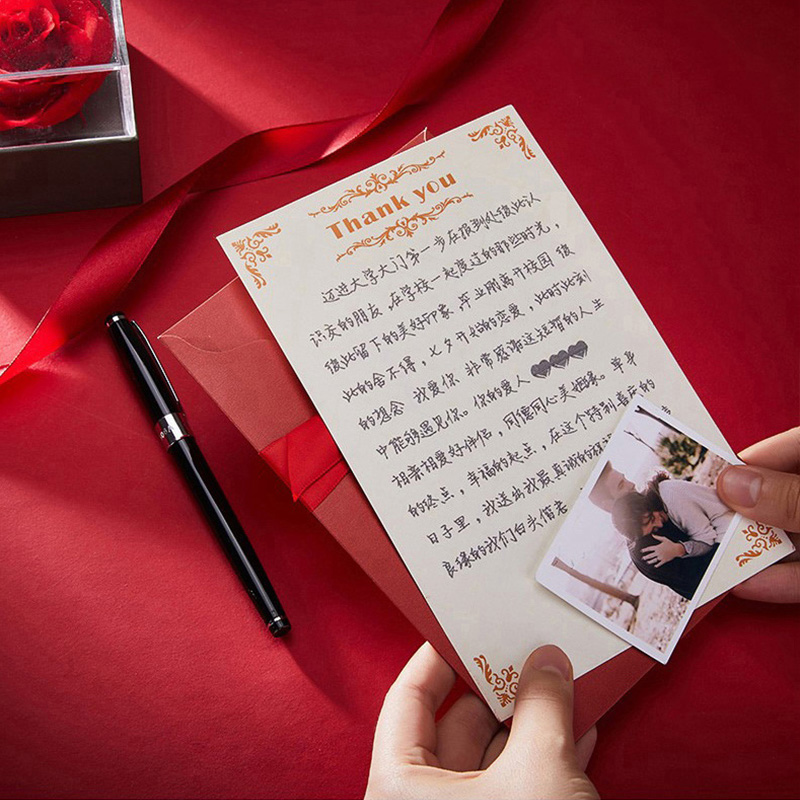 Thank you
迈进大学大门第一步在报到处彼此认
识交的朋友，在学校一起度过的那些时光，
彼此留下的美好印象，毕业刚离开校园 彼
此的舍不得，七夕开始的恋爱，此时此刻
的想念 我爱你 非常感谢这短暂的人生
中能够遇见你。你的爱人
相亲相爱好伴侣，同德同心美姻缘。单身
的终点，幸福的起点，在这个特别喜庆的
日子里，我送出我最真诚的祝
良缘的我们白头偕老